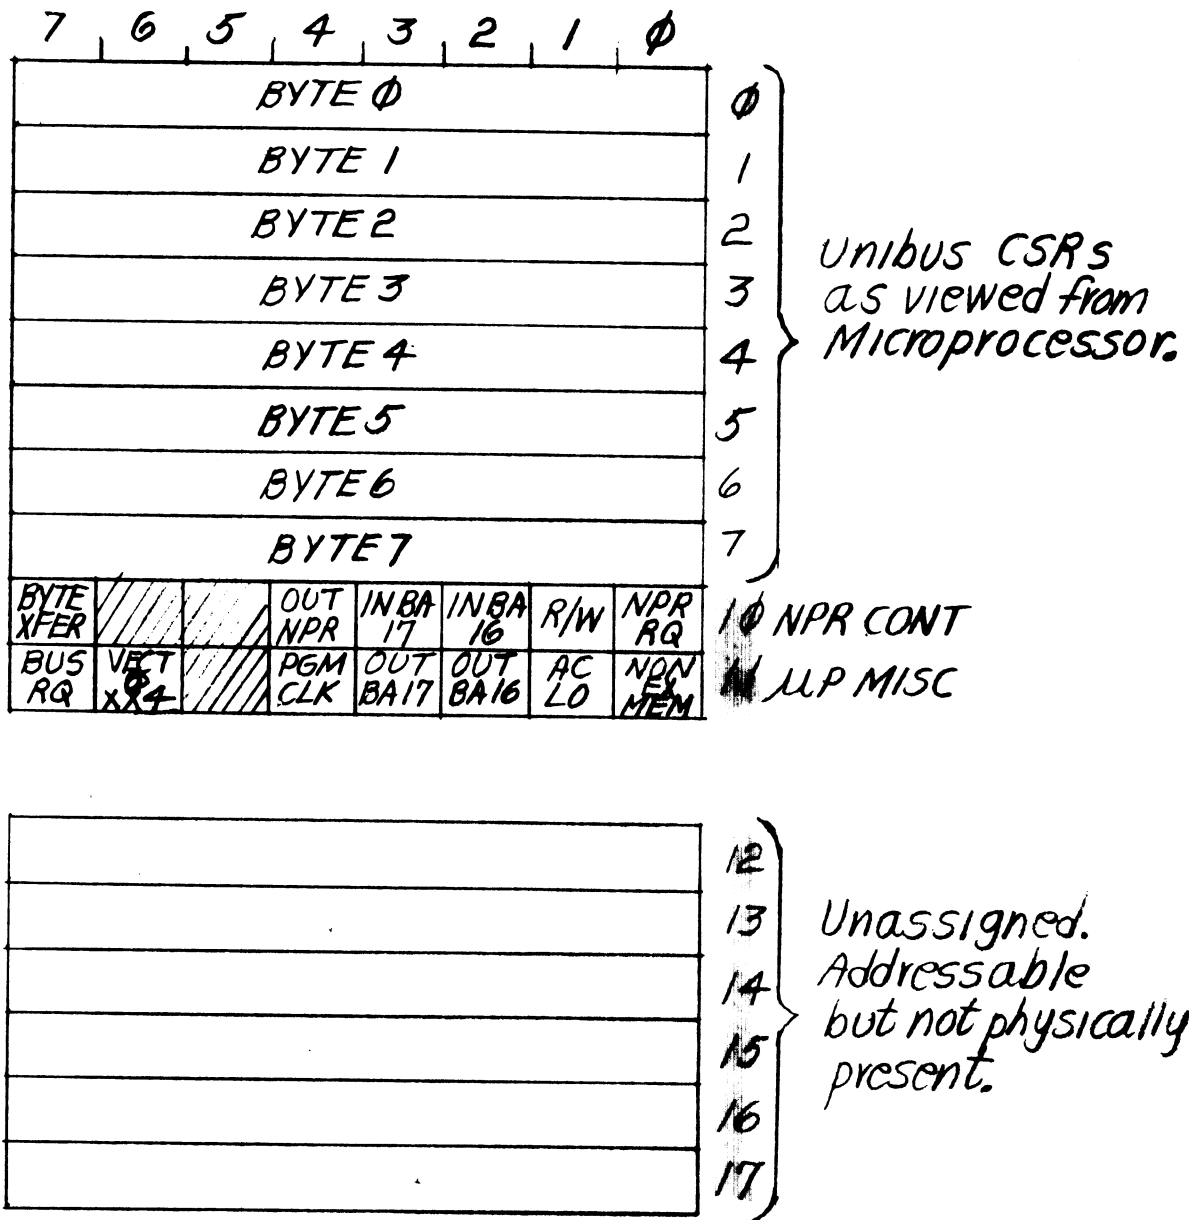 7 6 5 4 3 2 1 Ø
BYTE Ø Ø
BYTE 1 1
BYTE 2 2
BYTE 3 3
BYTE 4 4
BYTE 5 5
BYTE 6 6
BYTE 7 7
Unibus CSRs
as viewed from
Microprocessor.
BYTE XFER
OUT NPR
IN BA 17
IN BA 16
R/W
NPR RQ
1Ø NPR CONT
BUS RQ
VECT XX4
PGM CLK
OUT BA17
OUT BA16
AC LO
NON EX MEM
µP MISC
12
13
14
15
16
17
Unassigned.
Addressable
but not physically
present.